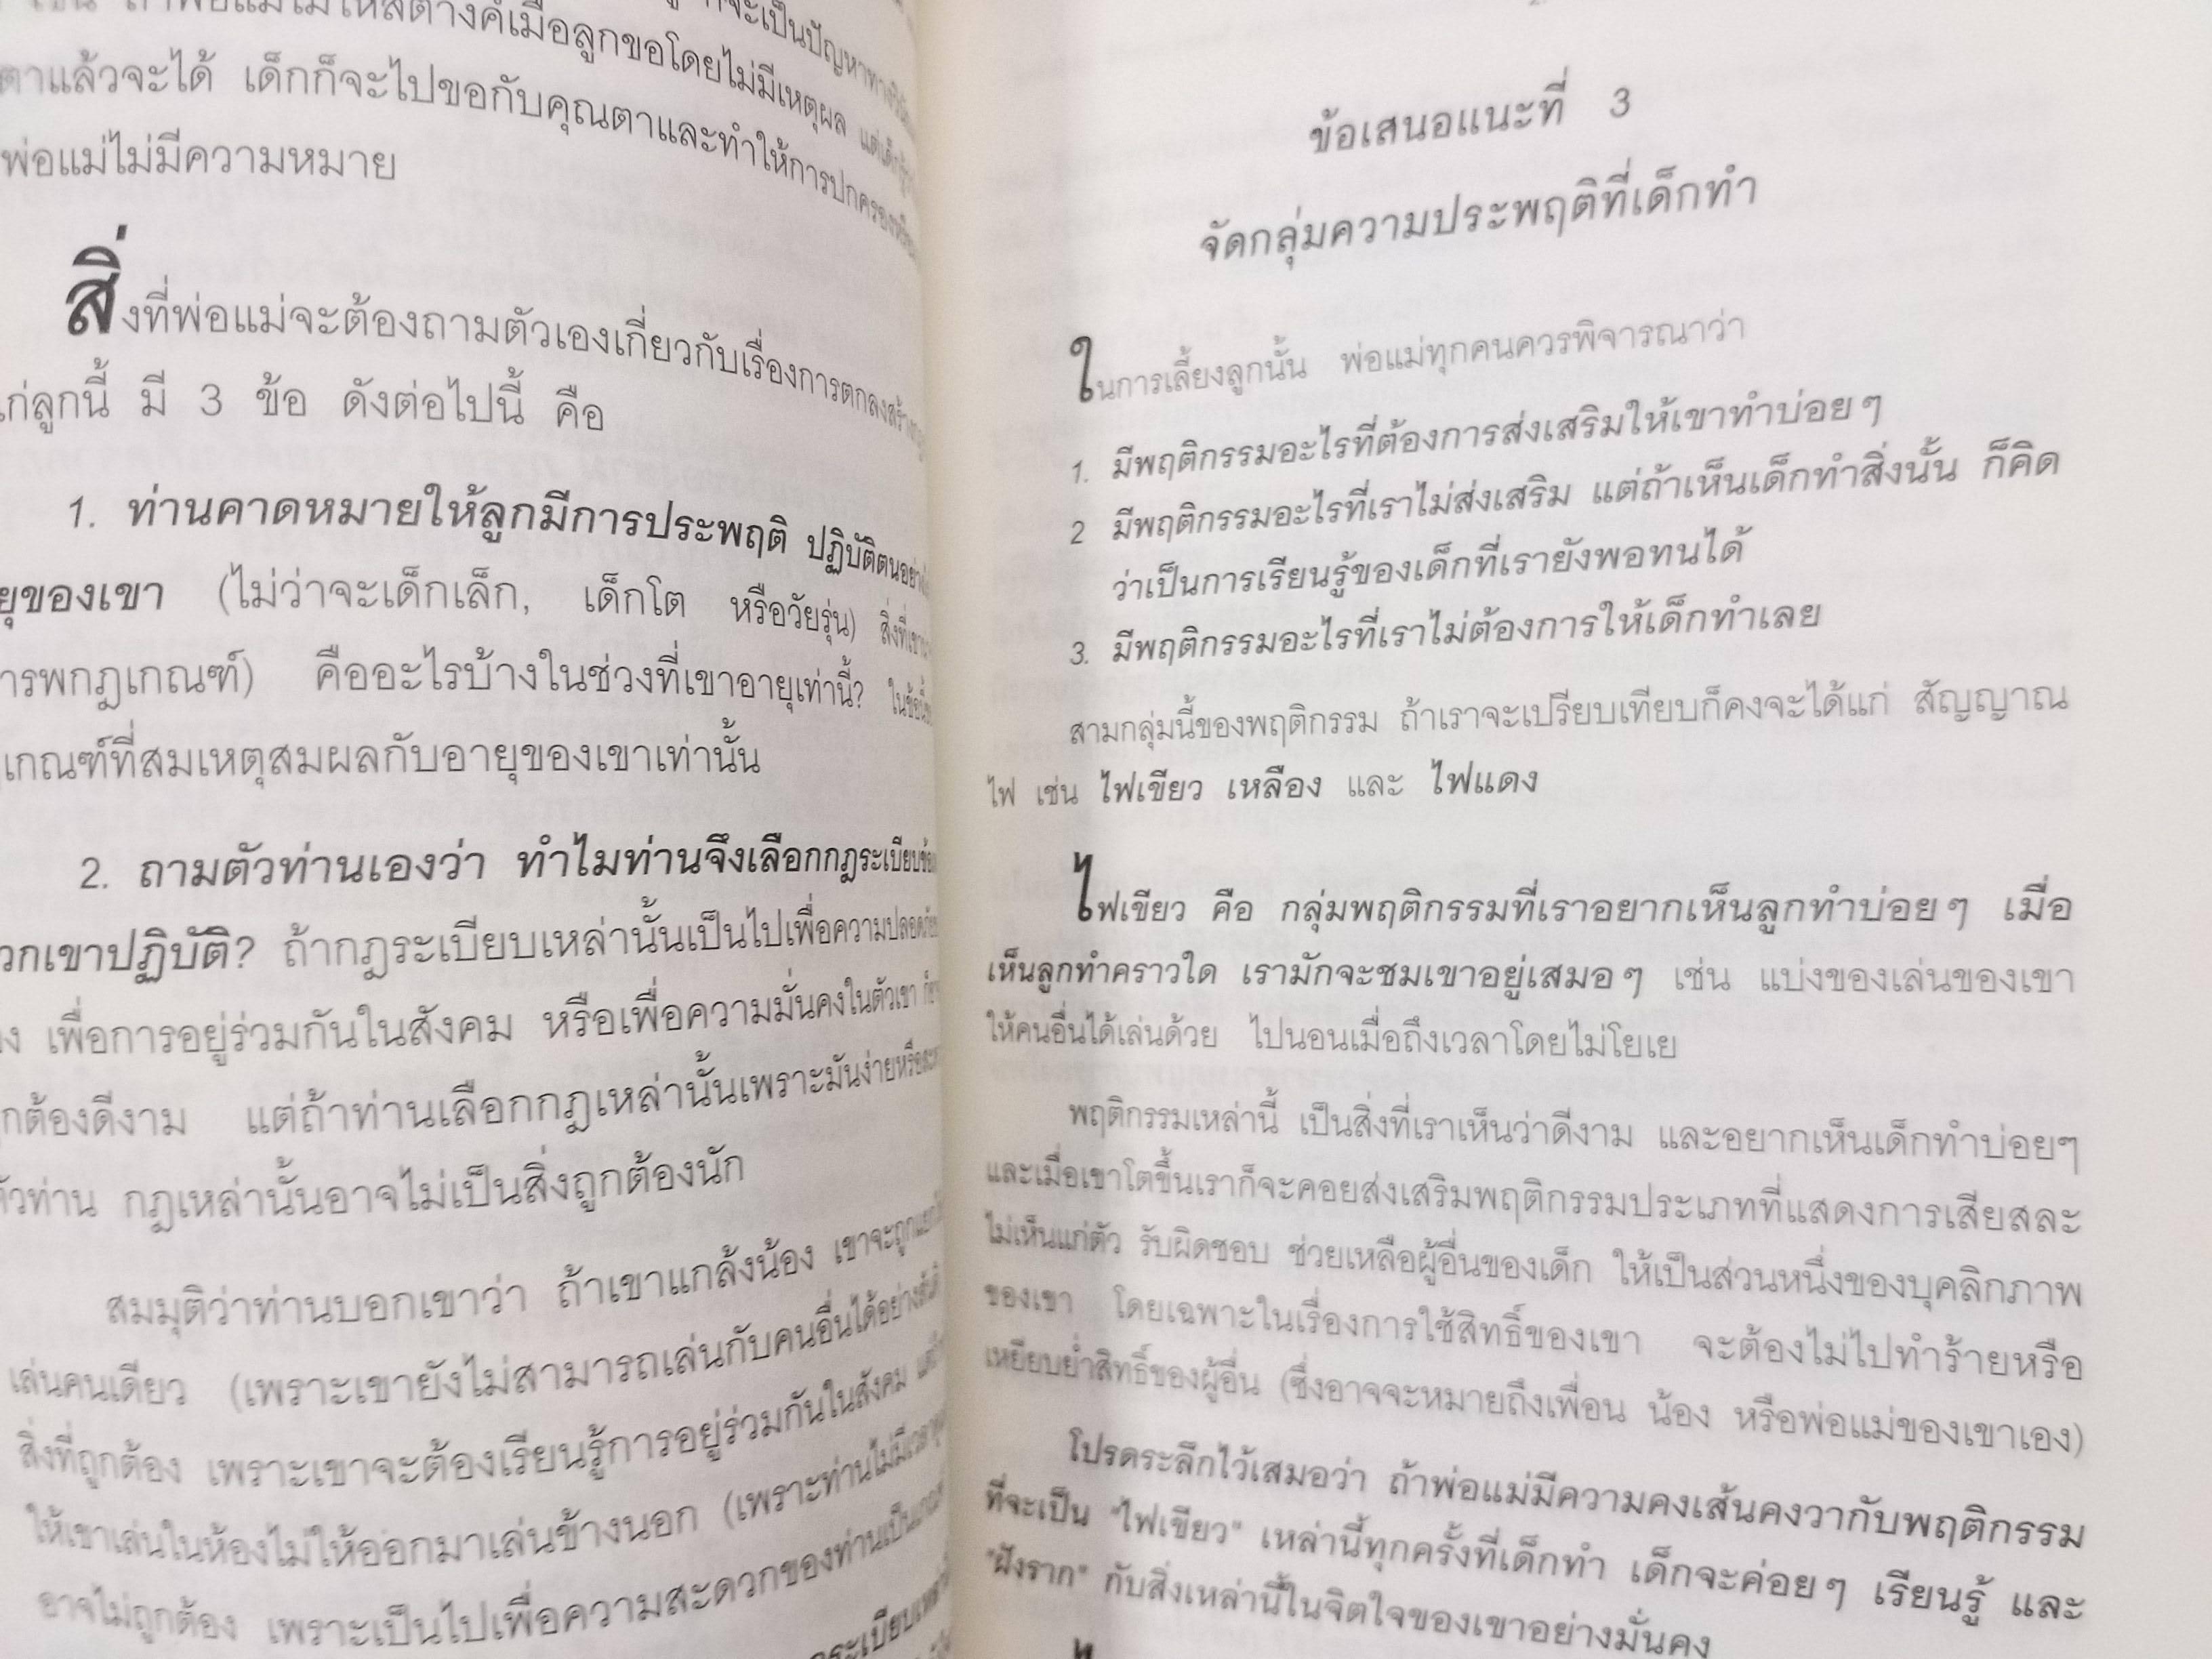 ตาแล้วจะได้ เด็กก็จะไปขอกับคุณตาและทำให้การปกครองของ
พ่อแม่ไม่มีความหมาย
สิ่งที่พ่อแม่จะต้องถามตัวเองเกี่ยวกับเรื่องการตกลงสร้าง
แก่ลูกนี้ มี 3 ข้อ ดังต่อไปนี้ คือ
1. ท่านคาดหมายให้ลูกมีการประพฤติ ปฏิบัติตน
ของเขา (ไม่ว่าจะเด็กเล็ก, เด็กโต หรือวัยรุ่น)
คืออะไรบ้างในช่วงที่เขาอายุเท่านี้?
เกณฑ์ที่สมเหตุสมผลกับอายุของเขาเท่านั้น
2. ถามตัวท่านเองว่า ทำไมท่านจึงเลือกกฎระเบียบ
วกเขาปฏิบัติ? ถ้ากฎระเบียบเหล่านั้นเป็นไปเพื่อความปลอดภัย
เพื่อการอยู่ร่วมกันในสังคม หรือเพื่อความมั่นคงในตัวเขา
กต้องดีงาม แต่ถ้าท่านเลือกกฎเหล่านั้นเพราะมันง่ายหรือ
ตัวท่าน กฎเหล่านั้นอาจไม่เป็นสิ่งถูกต้องนัก
สมมุติว่าท่านบอกเขาว่า ถ้าเขาแกล้งน้อง เขาจะถูกแยก
เล่นคนเดียว (เพราะเขายังไม่สามารถเล่นกับคนอื่นได้อย่าง
สิ่งที่ถูกต้อง เพราะเขาจะต้องเรียนรู้การอยู่ร่วมกันในสังคม
ให้เขาเล่นในห้องไม่ให้ออกมาเล่นข้างนอก (เพราะท่านไม่มีเวลา
อาจไม่ถูกต้อง เพราะเป็นไปเพื่อความสะดวกของท่านเป็น
ข้อเสนอแนะที่ 3
จัดกลุ่มความประพฤติที่เด็กทำ
ในการเลี้ยงลูกนั้น พ่อแม่ทุกคนควรพิจารณาว่า
1. มีพฤติกรรมอะไรที่ต้องการส่งเสริมให้เขาทำบ่อยๆ
2 มีพฤติกรรมอะไรที่เราไม่ส่งเสริม แต่ถ้าเห็นเด็กทำสิ่งนั้น ก็คิด
ว่าเป็นการเรียนรู้ของเด็กที่เรายังพอทนได้
3. มีพฤติกรรมอะไรที่เราไม่ต้องการให้เด็กทำเลย
สามกลุ่มนี้ของพฤติกรรม ถ้าเราจะเปรียบเทียบก็คงจะได้แก่ สัญญาณ
ไฟ เช่น ไฟเขียว เหลือง และ ไฟแดง
ไฟเขียว คือ กลุ่มพฤติกรรมที่เราอยากเห็นลูกทำบ่อยๆ เมื่อ
เห็นลูกทำคราวใด เรามักจะชมเขาอยู่เสมอๆ เช่น แบ่งของเล่นของเขา
ให้คนอื่นได้เล่นด้วย ไปนอนเมื่อถึงเวลาโดยไม่โยเย
พฤติกรรมเหล่านี้ เป็นสิ่งที่เราเห็นว่าดีงาม และอยากเห็นเด็กทำบ่อยๆ
และเมื่อเขาโตขึ้นเราก็จะคอยส่งเสริมพฤติกรรมประเภทที่แสดงการเสียสละ
ไม่เห็นแก่ตัว รับผิดชอบ ช่วยเหลือผู้อื่นของเด็ก ให้เป็นส่วนหนึ่งของบุคลิกภาพ
ของเขา โดยเฉพาะในเรื่องการใช้สิทธิ์ของเขา จะต้องไม่ไปทำร้ายหรือ
เหยียบย่ำสิทธิ์ของผู้อื่น (ซึ่งอาจจะหมายถึงเพื่อน น้อง หรือพ่อแม่ของเขาเอง)
โปรดระลึกไว้เสมอว่า ถ้าพ่อแม่มีความคงเส้นคงวากับพฤติกรรม
ที่จะเป็น "ไฟเขียว" เหล่านี้ทุกครั้งที่เด็กทำ เด็กจะค่อยๆ เรียนรู้ และ
"ฝังราก" กับสิ่งเหล่านี้ในจิตใจของเขาอย่างมั่นคง